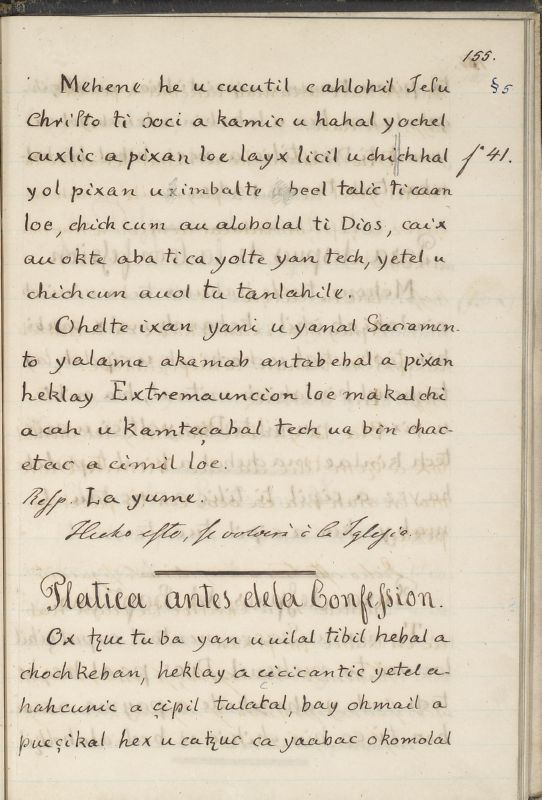 155.
Mehene he u cucutil cahlohil Jesu § 5
Christo ti ɔoci a kamic u hahal yochel
cuxlic a pixan loe layx licil u chichhal fº 41.
yol pixan u ximbalte u beel talic ti caan
loe, chich cum au alobolal ti Dios, caix
au okte aba ti ca yolte yan tech, yetel u
chichcun auol tu tanlahile.
Ohelte ixan yani u yanal Sacramen-
to yalama akamab antabebal a pixan
heklay Extremauncion loe makalchi
a cah u kamteçabal tech ua bin chac-
etac a cimil loe.
Resp. La yume.
Hecho esto, se volverá á la Iglesia.
Platica antes dela Confession.
Ox tzuc tu ba yan u uilal tibil hebal a
chochkeban, heklay a cicicantic yetel a-
hahcunic a çipil tulatal, bay ohmail a
pucçikal hex u catzuc ca yaabac okomolal